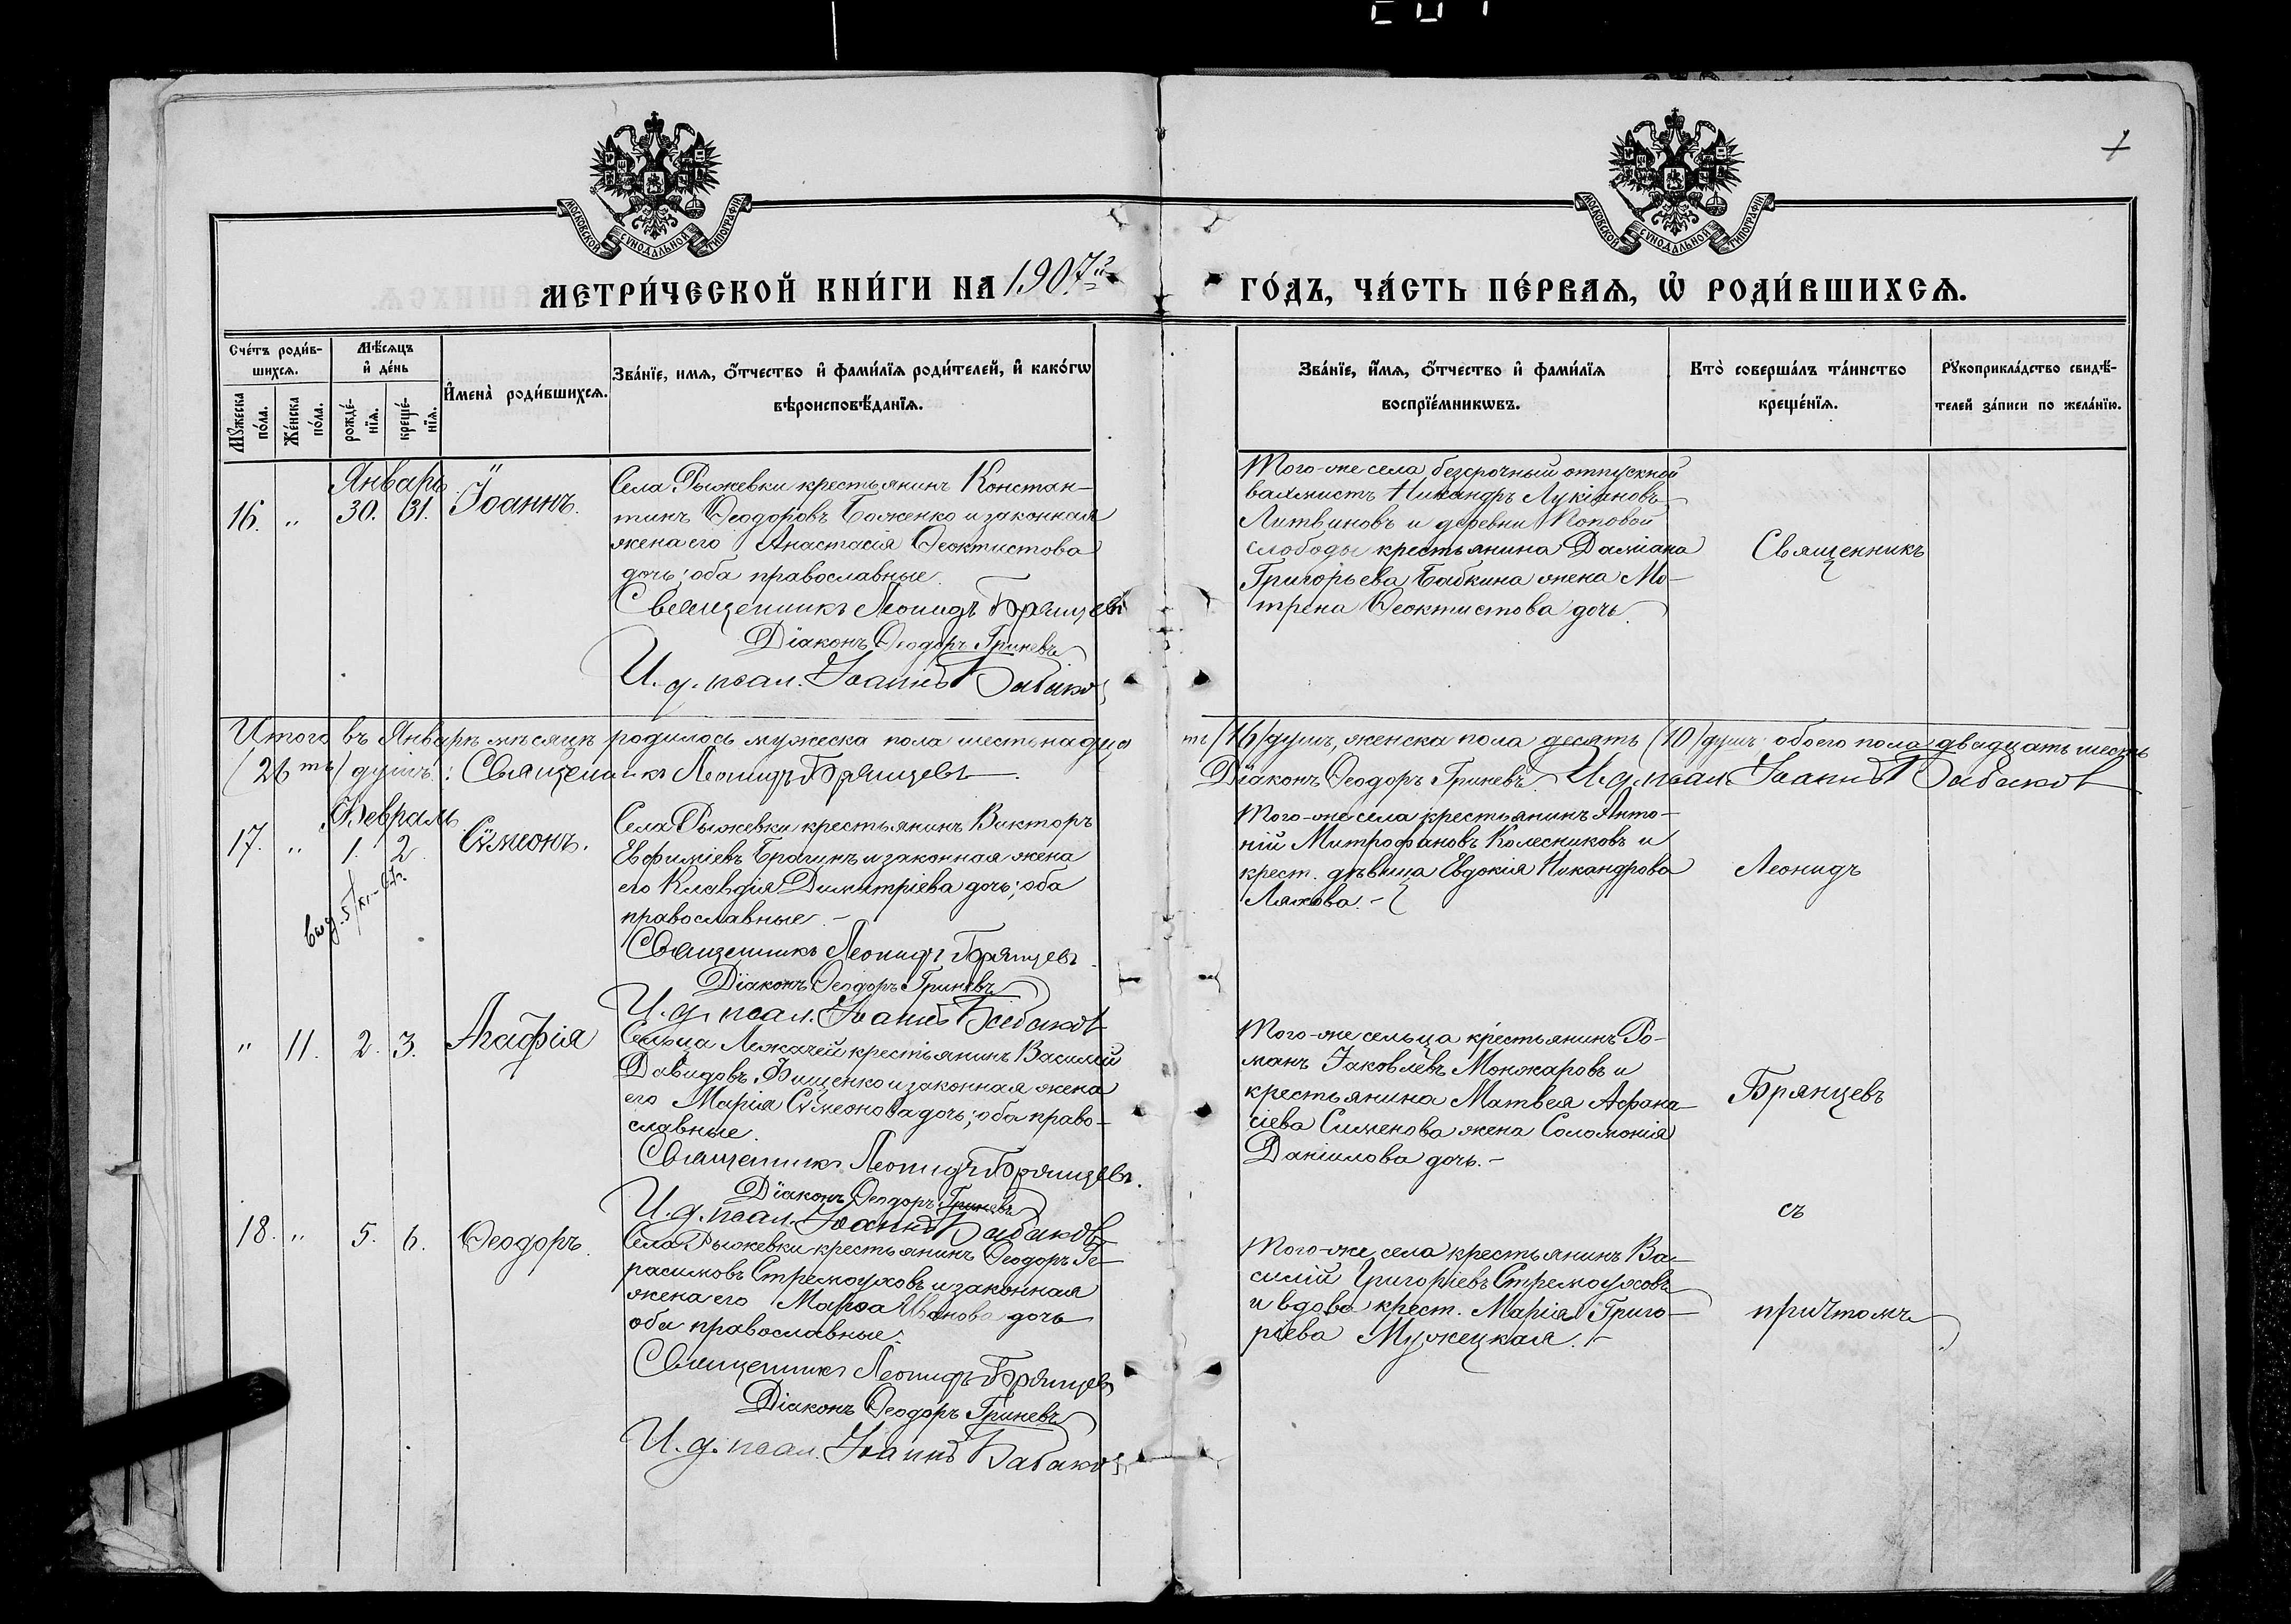 МОСКОВСКОЙ СУНОДАЛЬНОЙ ТИПОГРАФІИ
МОСКОВСКОЙ СУНОДАЛЬНОЙ ТИПОГРАФІИ
МЕТРИ́ЧЕСКОЙ КНИ́ГИ НА 1907й
ГО́ДЪ, ЧА́СТЬ ПЕ́РВАѦ, Ѡ҆ РОДИ́ВШИХСѦ.
Сче́тъ роди́в-
шихсѧ.
Мѣ́сѧцъ
и҆ де́нь
И҆мена̀ роди́вшихсѧ.
Зва́нїе, имѧ, ѻ҆́тчество и҆ фами́лїѧ роди́телей, и҆ како́гѡ
вѣроисповѣ́данїѧ.
Мꙋ́жеска
по́ла.
Же́нска
по́ла.
рожде́-
нїѧ.
креще́-
нїѧ.
Зва́нїе, и҆́мѧ, ѻ҆́тчество и҆ фами́лїѧ
воспрїе́мникѡвъ.
Кто̀ соверша́лъ та́инство
креще́нїѧ.
Рꙋкоприкла́дство свидѣ́-
телей за́писи по жела́нїю.
Январь
16. „ 30. 31. Іоаннъ.
Села Рыжевки крестьянинъ Констан-
тинъ Ѳеодоровъ Боженко и законная
жена его Анастасія Ѳеоктистова
дочь; оба православные.
Священникъ Леонидъ Брянцевъ
Діаконъ Ѳеодоръ Гриневъ
И. д. псал. Іоаннъ Бабаков
Того-же села безсрочный отпускной
вахмистъ Никандръ Лукіановъ
Литвиновъ и деревни Поповой
слободы крестьянина Даміана
Григорьева Бабкина жена Мо-
трена Ѳеоктистова дочь.
Священникъ
Итого въ Январѣ мѣсяцѣ родилось мужеска пола шестьнадца
ть /16/ душъ, женска пола десять /10/ душъ; обоего пола двадцать шесть
/26ть/ душъ: Священникъ Леонидъ Брянцевъ.
Діаконъ Ѳеодоръ Гриневъ. И. д. псал. Іоаннъ Бабаков
Февраль
17. „ 1. 2. Сѵмеонъ.
Села Рыжевки крестьянинъ Викторъ
Евфиміевъ Брагинъ и законная жена
его Клавдія Димитріева дочь; оба
православные. -
Священникъ Леонидъ Брянцевъ.
Діаконъ Ѳеодоръ Гриневъ
И. д. псал. Іоаннъ Бабаков
Того-же села крестьянинъ Анто-
ній Митрофановъ Колесниковъ и
крест. дѣвица Евдокія Никандрова
Ляхова. -
Леонидъ
„ 11. 2. 3. Агафія
Сельца Лежачей крестьянинъ Василій
Давидовъ Фищенко и законная жена
его Марія Сѵмеонова дочь; оба право-
славные.
Священникъ Леонидъ Брянцевъ.
Діаконъ Ѳеодоръ Гриневъ
И. д. псал. Іоаннъ Бабаков
Того-же сельца крестьянинъ Ро-
манъ Іаковлевъ Монжаровъ и
крестьянина Матвея Афана-
сіева Сименова жена Соломонія
Даніилова дочь. -
Брянцевъ
съ
18. „ 5. 6. Ѳеодоръ.
Села Рыжевки крестьянинъ Ѳеодоръ Ге-
расимовъ Стремоуховъ и законная
жена его Марѳа Иванова дочь
оба православные.
Священникъ Леонидъ Брянцевъ
Діаконъ Ѳеодоръ Гриневъ
И. д. псал. Іоаннъ Бабаков
Того-же села крестьянинъ Ва-
силій Григоріевъ Стремоуховъ
и вдова крест. Марія Григо-
ріева Мужецкая. -
причтомъ